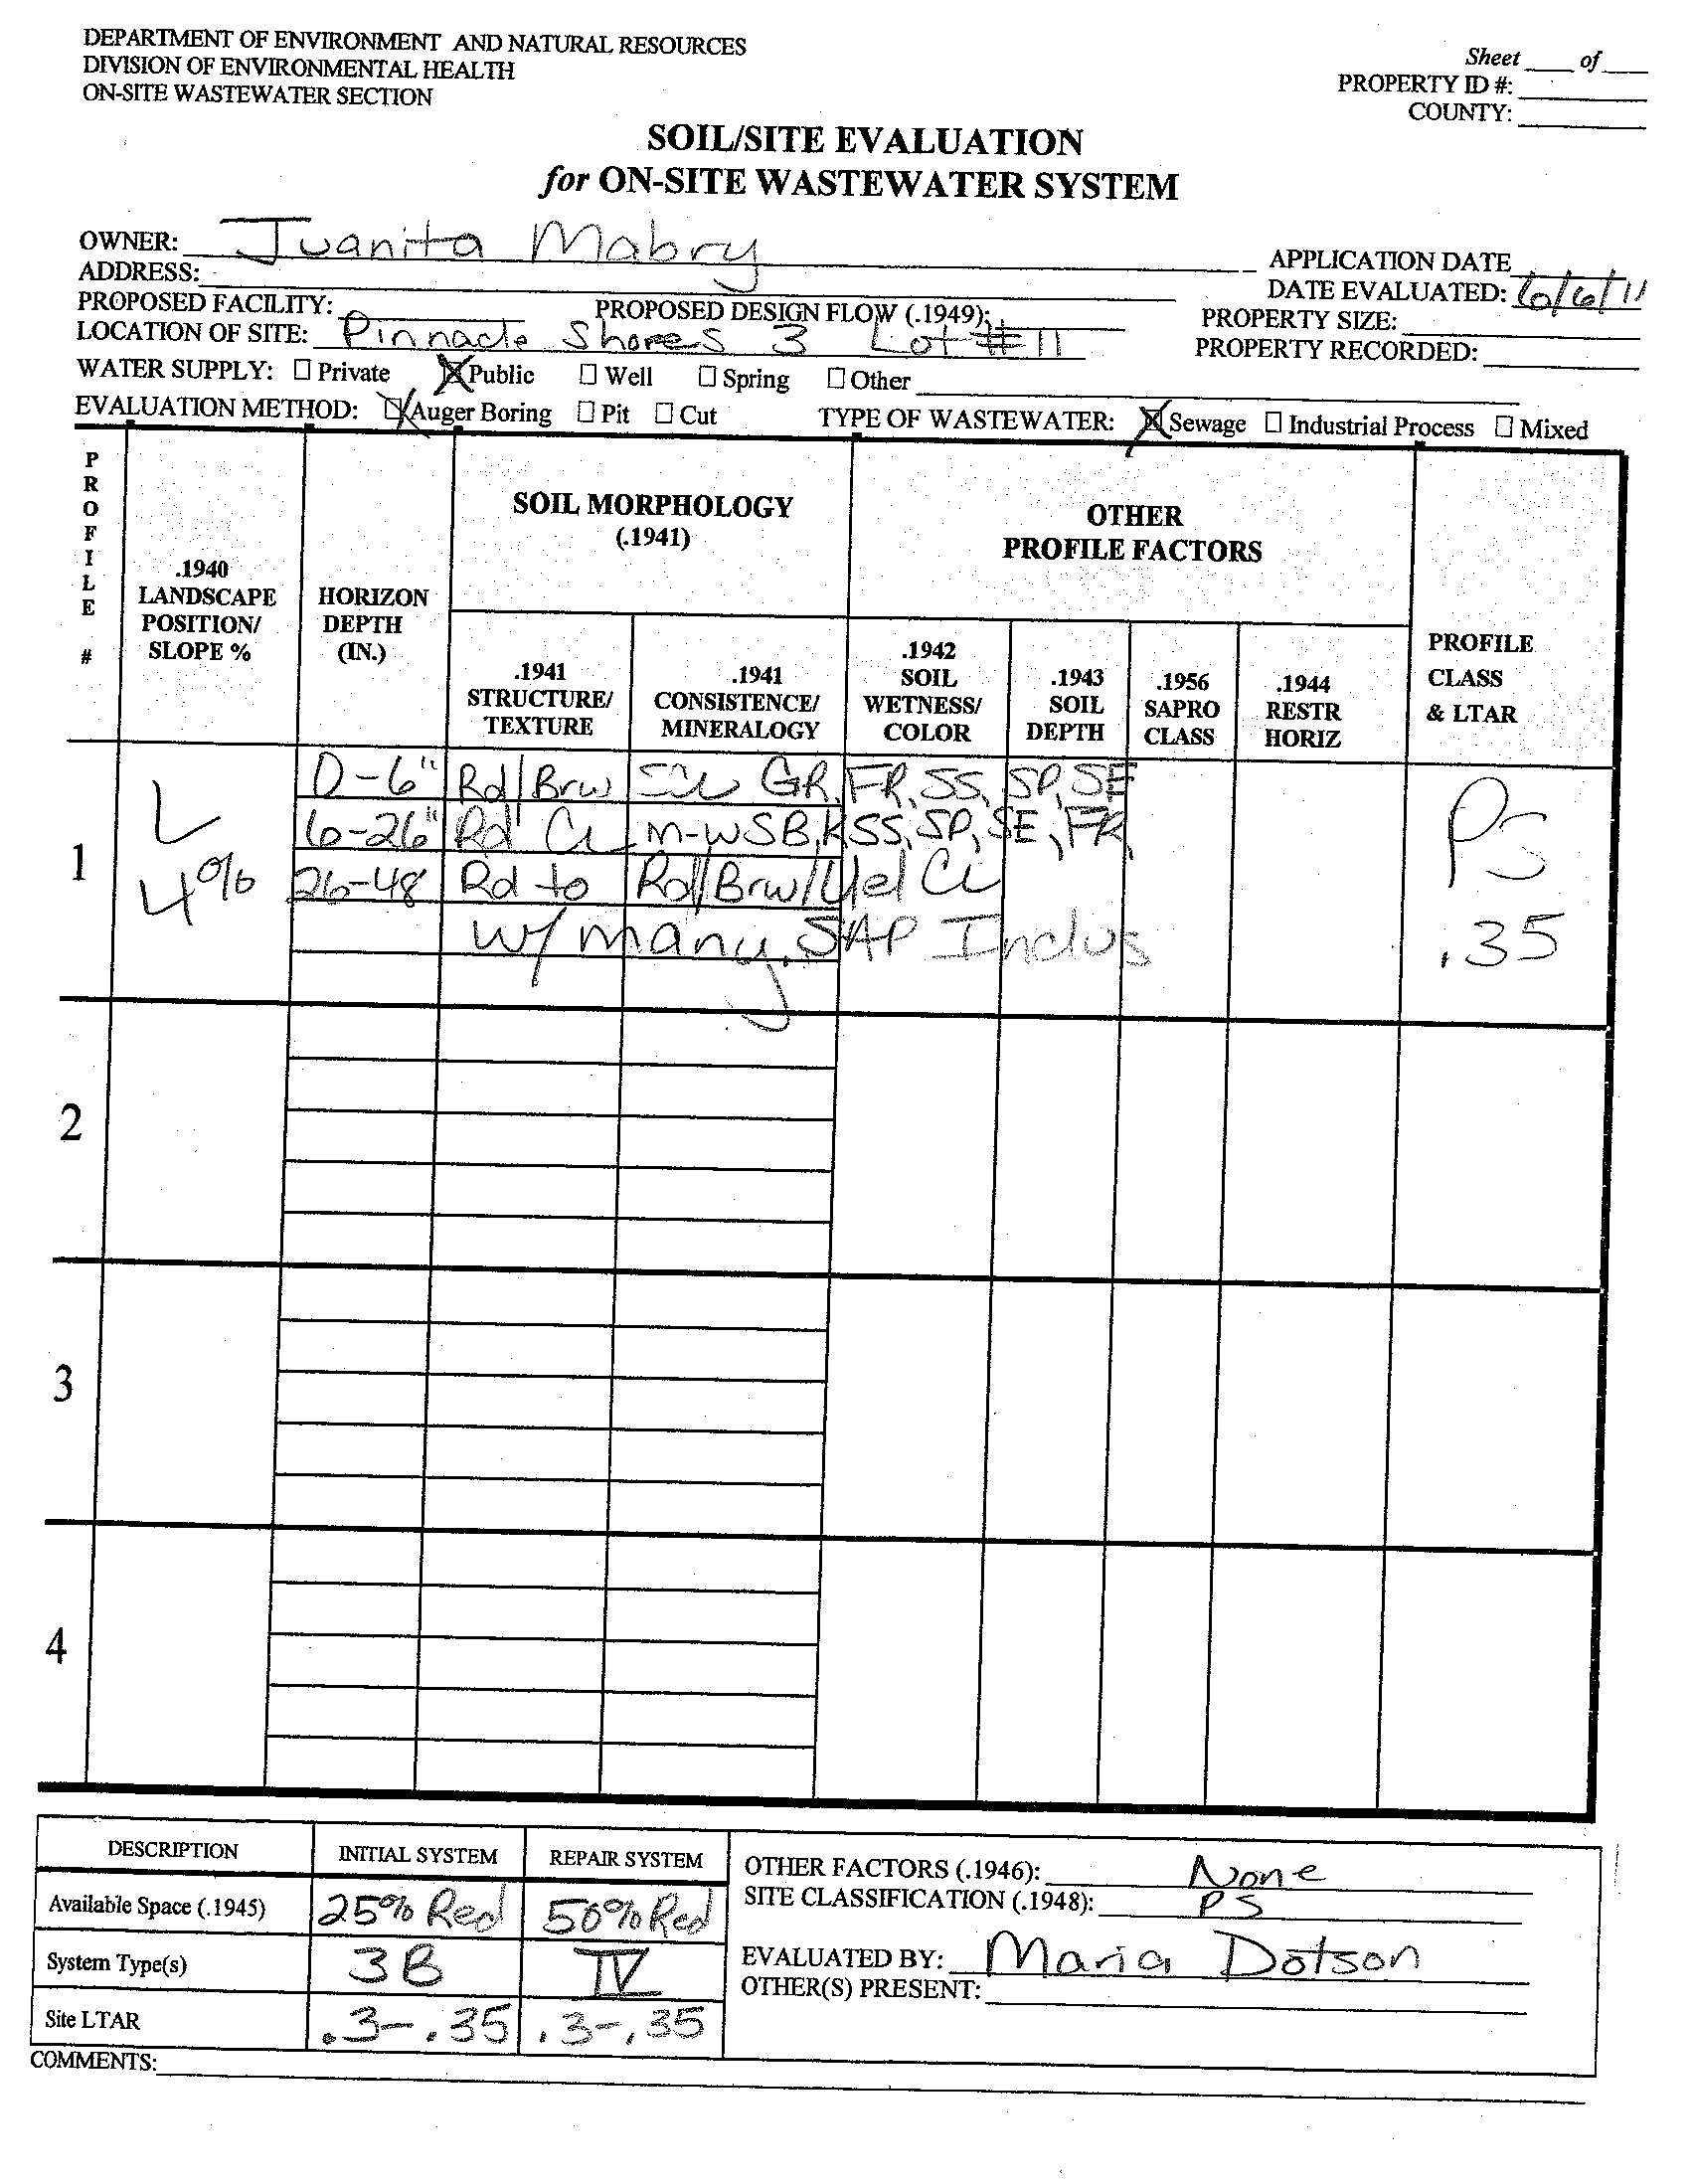 DEPARTMENT OF ENVIRONMENT AND NATURAL RESOURCES
DIVISION OF ENVIRONMENTAL HEALTH
ON-SITE WASTEWATER SECTION
Sheet ____ of ____
PROPERTY ID #:
COUNTY:
SOIL/SITE EVALUATION
for ON-SITE WASTEWATER SYSTEM
OWNER: Juanita Mabry
ADDRESS:
APPLICATION DATE
DATE EVALUATED: 6/6/11
PROPOSED FACILITY: PROPOSED DESIGN FLOW (.1949):
PROPERTY SIZE:
LOCATION OF SITE: Pinnacle Shores 3 Lot #11
PROPERTY RECORDED:
WATER SUPPLY: ☐ Private ☒ Public ☐ Well ☐ Spring ☐ Other
EVALUATION METHOD: ☒ Auger Boring ☐ Pit ☐ Cut TYPE OF WASTEWATER: ☒ Sewage ☐ Industrial Process ☐ Mixed
PROFILE #
.1940 LANDSCAPE POSITION/ SLOPE %
HORIZON DEPTH (IN.)
SOIL MORPHOLOGY (.1941)
.1941 STRUCTURE/ TEXTURE
.1941 CONSISTENCE/ MINERALOGY
OTHER PROFILE FACTORS
.1942 SOIL WETNESS/ COLOR
.1943 SOIL DEPTH
.1956 SAPRO CLASS
.1944 RESTR HORIZ
PROFILE CLASS & LTAR
1 L 4%
0-6" Rd/Brw SCL GR, FR, SS, SP, SE
6-26" Rd CL m-wSBK SS, SP, SE, FR
26-48 Rd to Rd/Brw/Yel CL
w/ many SAP Inclus
PS
.35
2
3
4
DESCRIPTION INITIAL SYSTEM REPAIR SYSTEM
Available Space (.1945) 25% Red 50% Red
System Type(s) 3B IV
Site LTAR .3-.35 .3-.35
OTHER FACTORS (.1946): None
SITE CLASSIFICATION (.1948): PS
EVALUATED BY: Maria Dotson
OTHER(S) PRESENT:
COMMENTS: